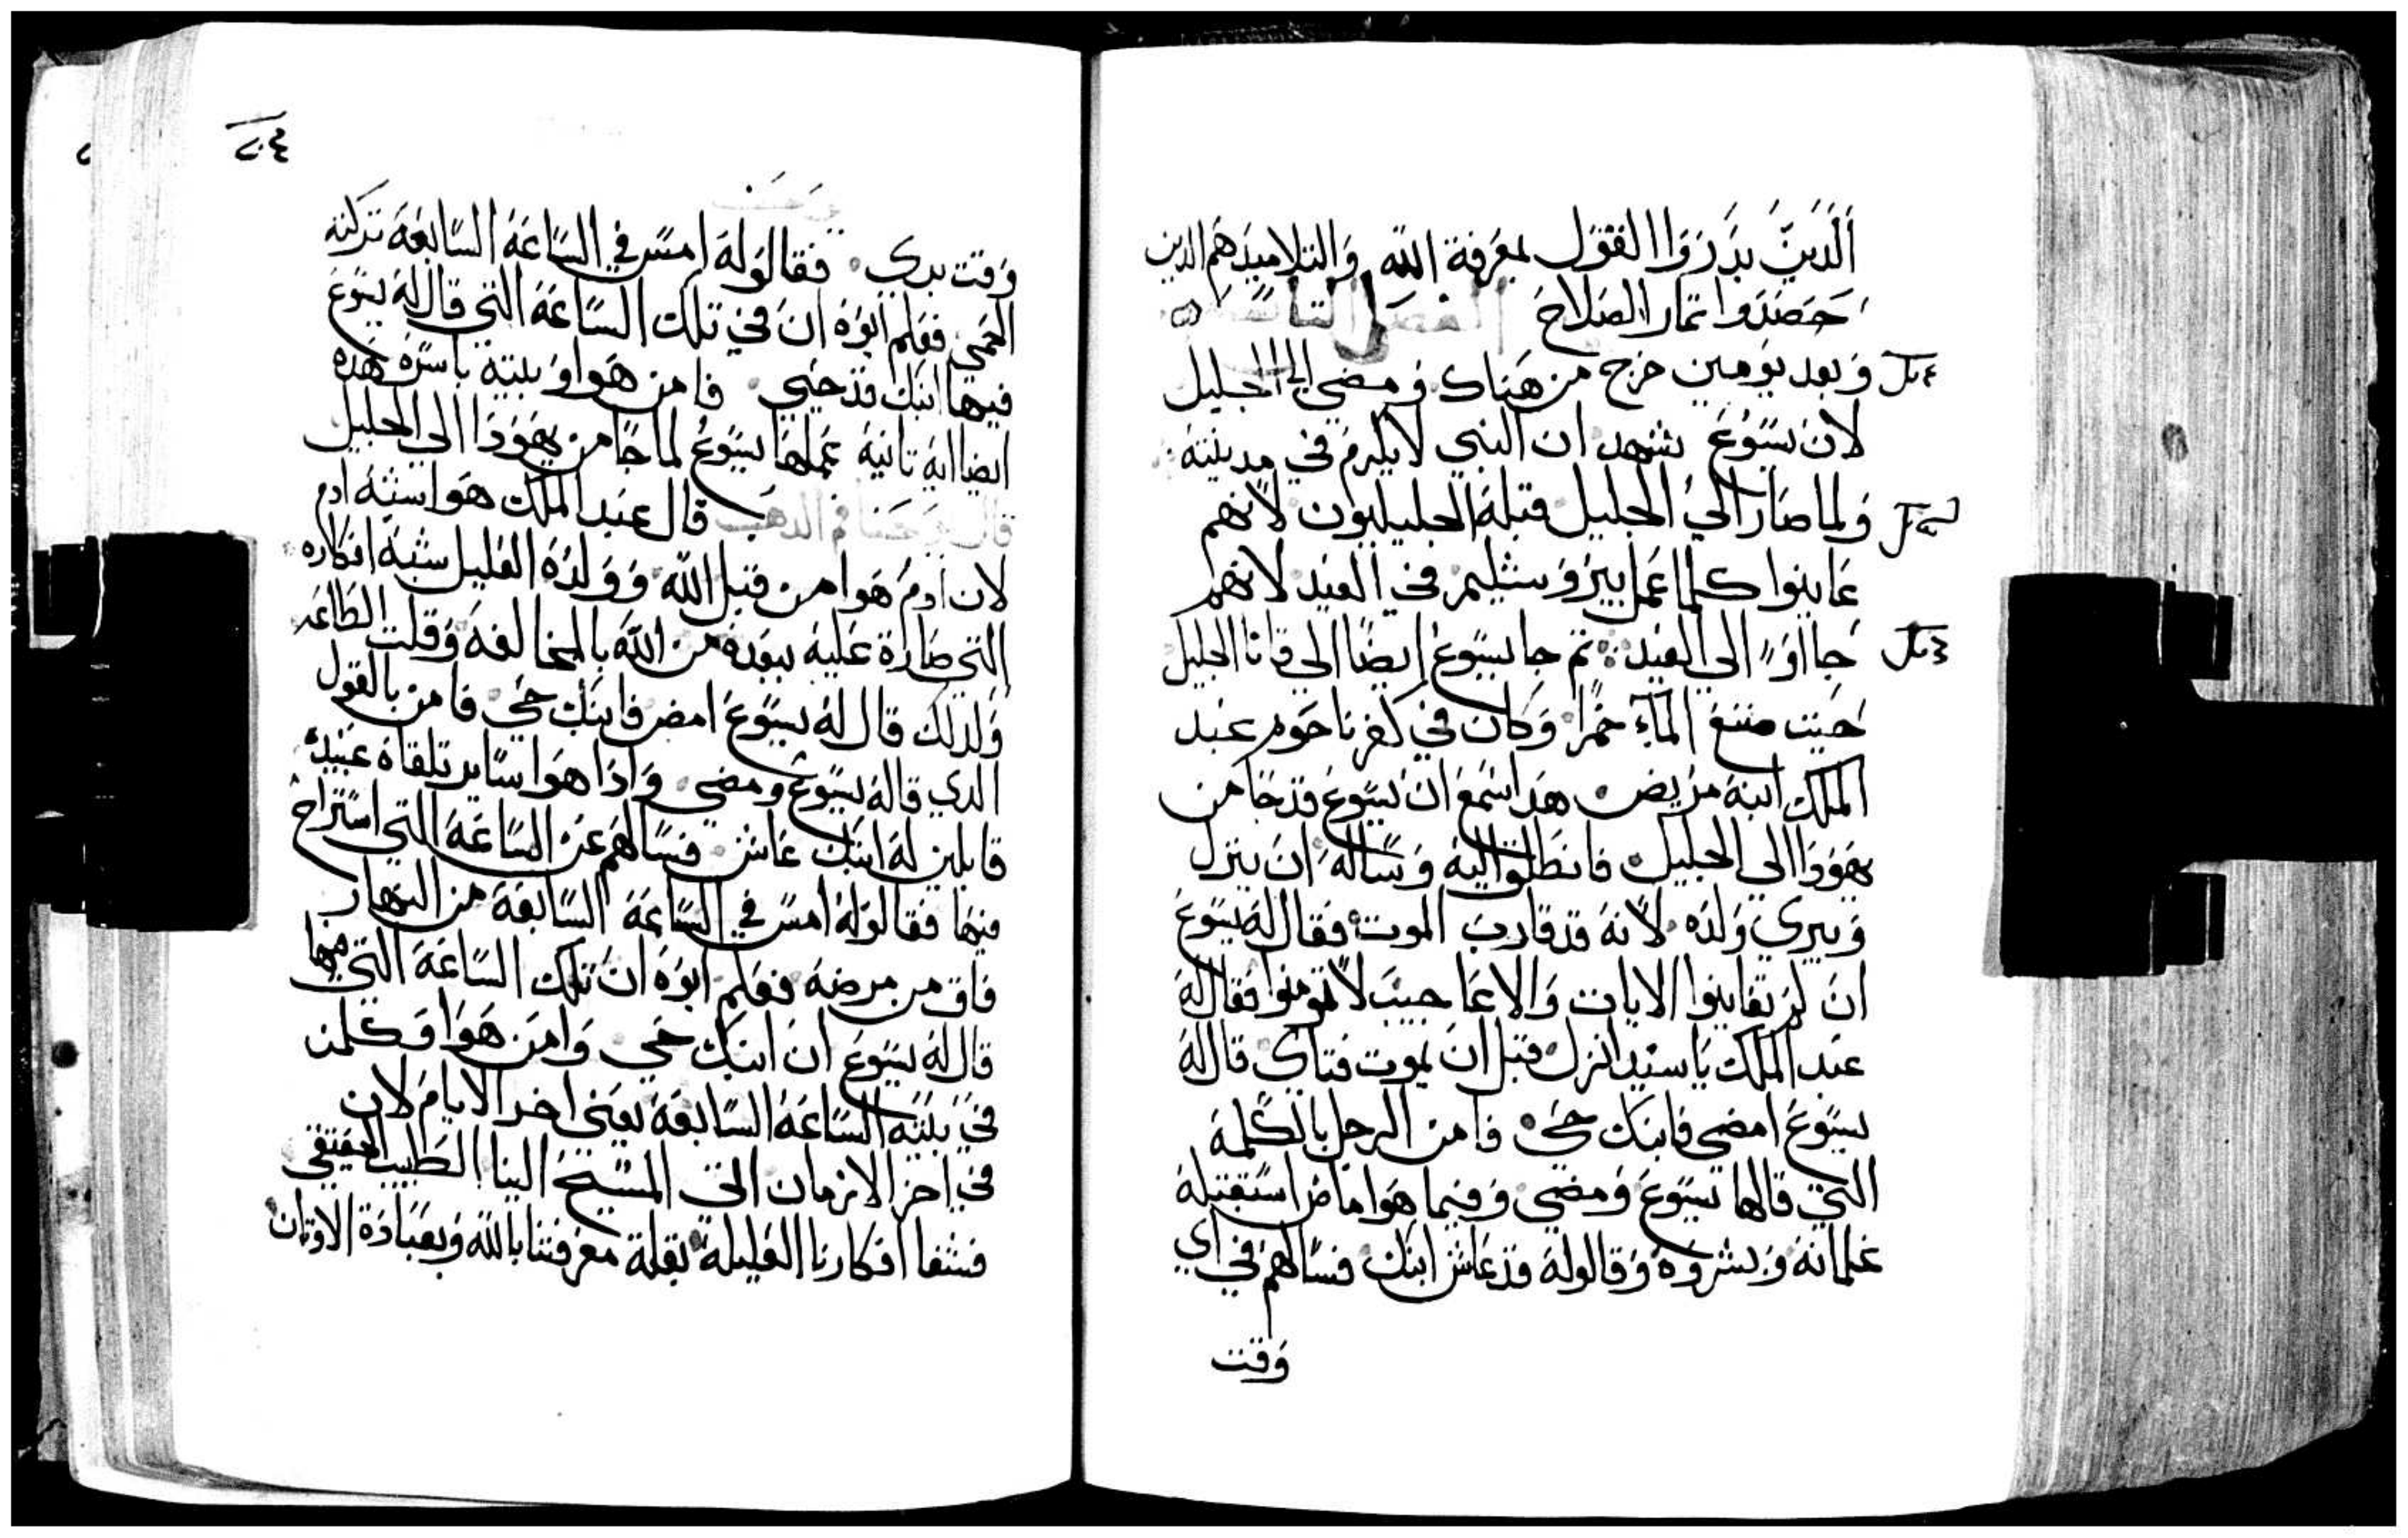 الدين بدروا القول بمعرفة الله والتلاميد هم الدين
حصدوا تمار الصلاح الفصل التاسع
وبعد يومين خرج من هناك ومضي الي الجليل
لان يسوع شهد ان النبي لا يكرم في مدينته
ولما صار الي الجليل قبله الجليليون لانهم
عاينوا كلما عمل بيروشليم في العيد لانهم
جااوا الي العيد ثم جا يسوع ايضا الي قانا الجليل
حيت صنع المآء خمرا وكان في كفرناحوم عبد
الملك ابنه مريض هدا سمع ان يسوع قد جا من
يهودا الي الجليل فانطلق اليه وساله ان ينزل
ويبري ولده لانه قد قارب الموت فقال له يسوع
ان لم تعاينوا الايات والاعاجيب لا تومنوا فقال له
عبد الملك يا سيد انزل قبل ان يموت فتاي قال له
يسوع امضي فابنك حي فامن الرجل بالكلمة
التي قالها يسوع ومضي وفيما هوا ماض استقبله
غلمانه وبشروه وقالوا له قد عاش ابنك فسالهم في اي
وقت
وقت بري فقالوا له امس في الساعة السابعة تركته
الحمي فعلم ابوه ان في تلك الساعة التي قال له يسوع
فيها ابنك قد حيي فامن هوا وبيته باسره هده
ايضا اية تانية عملها يسوع لما جا من يهودا الي الجليل
قال يوحنا فم الدهب قال عبد الملك هوا شبه ادم
لان ادم هوا من قبل الله وولده العليل شبه افكاره
التي صارة عليه ببعده من الله بالمخالفه وقلت الطاعه
ولدلك قال له يسوع امض فابنك حي فامن بالقول
الدي قاله يسوع ومضي وادا هوا ساير تلقاه عبيده
قايلين له ابنك عاش فسالهم عن الساعة التي استراح
فيها فقالوا له امس في الساعة السابعة من النهار
فاق من مرضه فعلم ابوه ان تلك الساعة التي فيها
قال له يسوع ان ابنك حي وامن هوا وكلمن
في بيته الساعة السابعة يعني اخر الايام لان
في اخر الازمان اتي المسيح الينا الطبيب الحقيقي
فشفا افكارنا العليلة بقلة معرفتنا بالله وبعبادة الاوتان